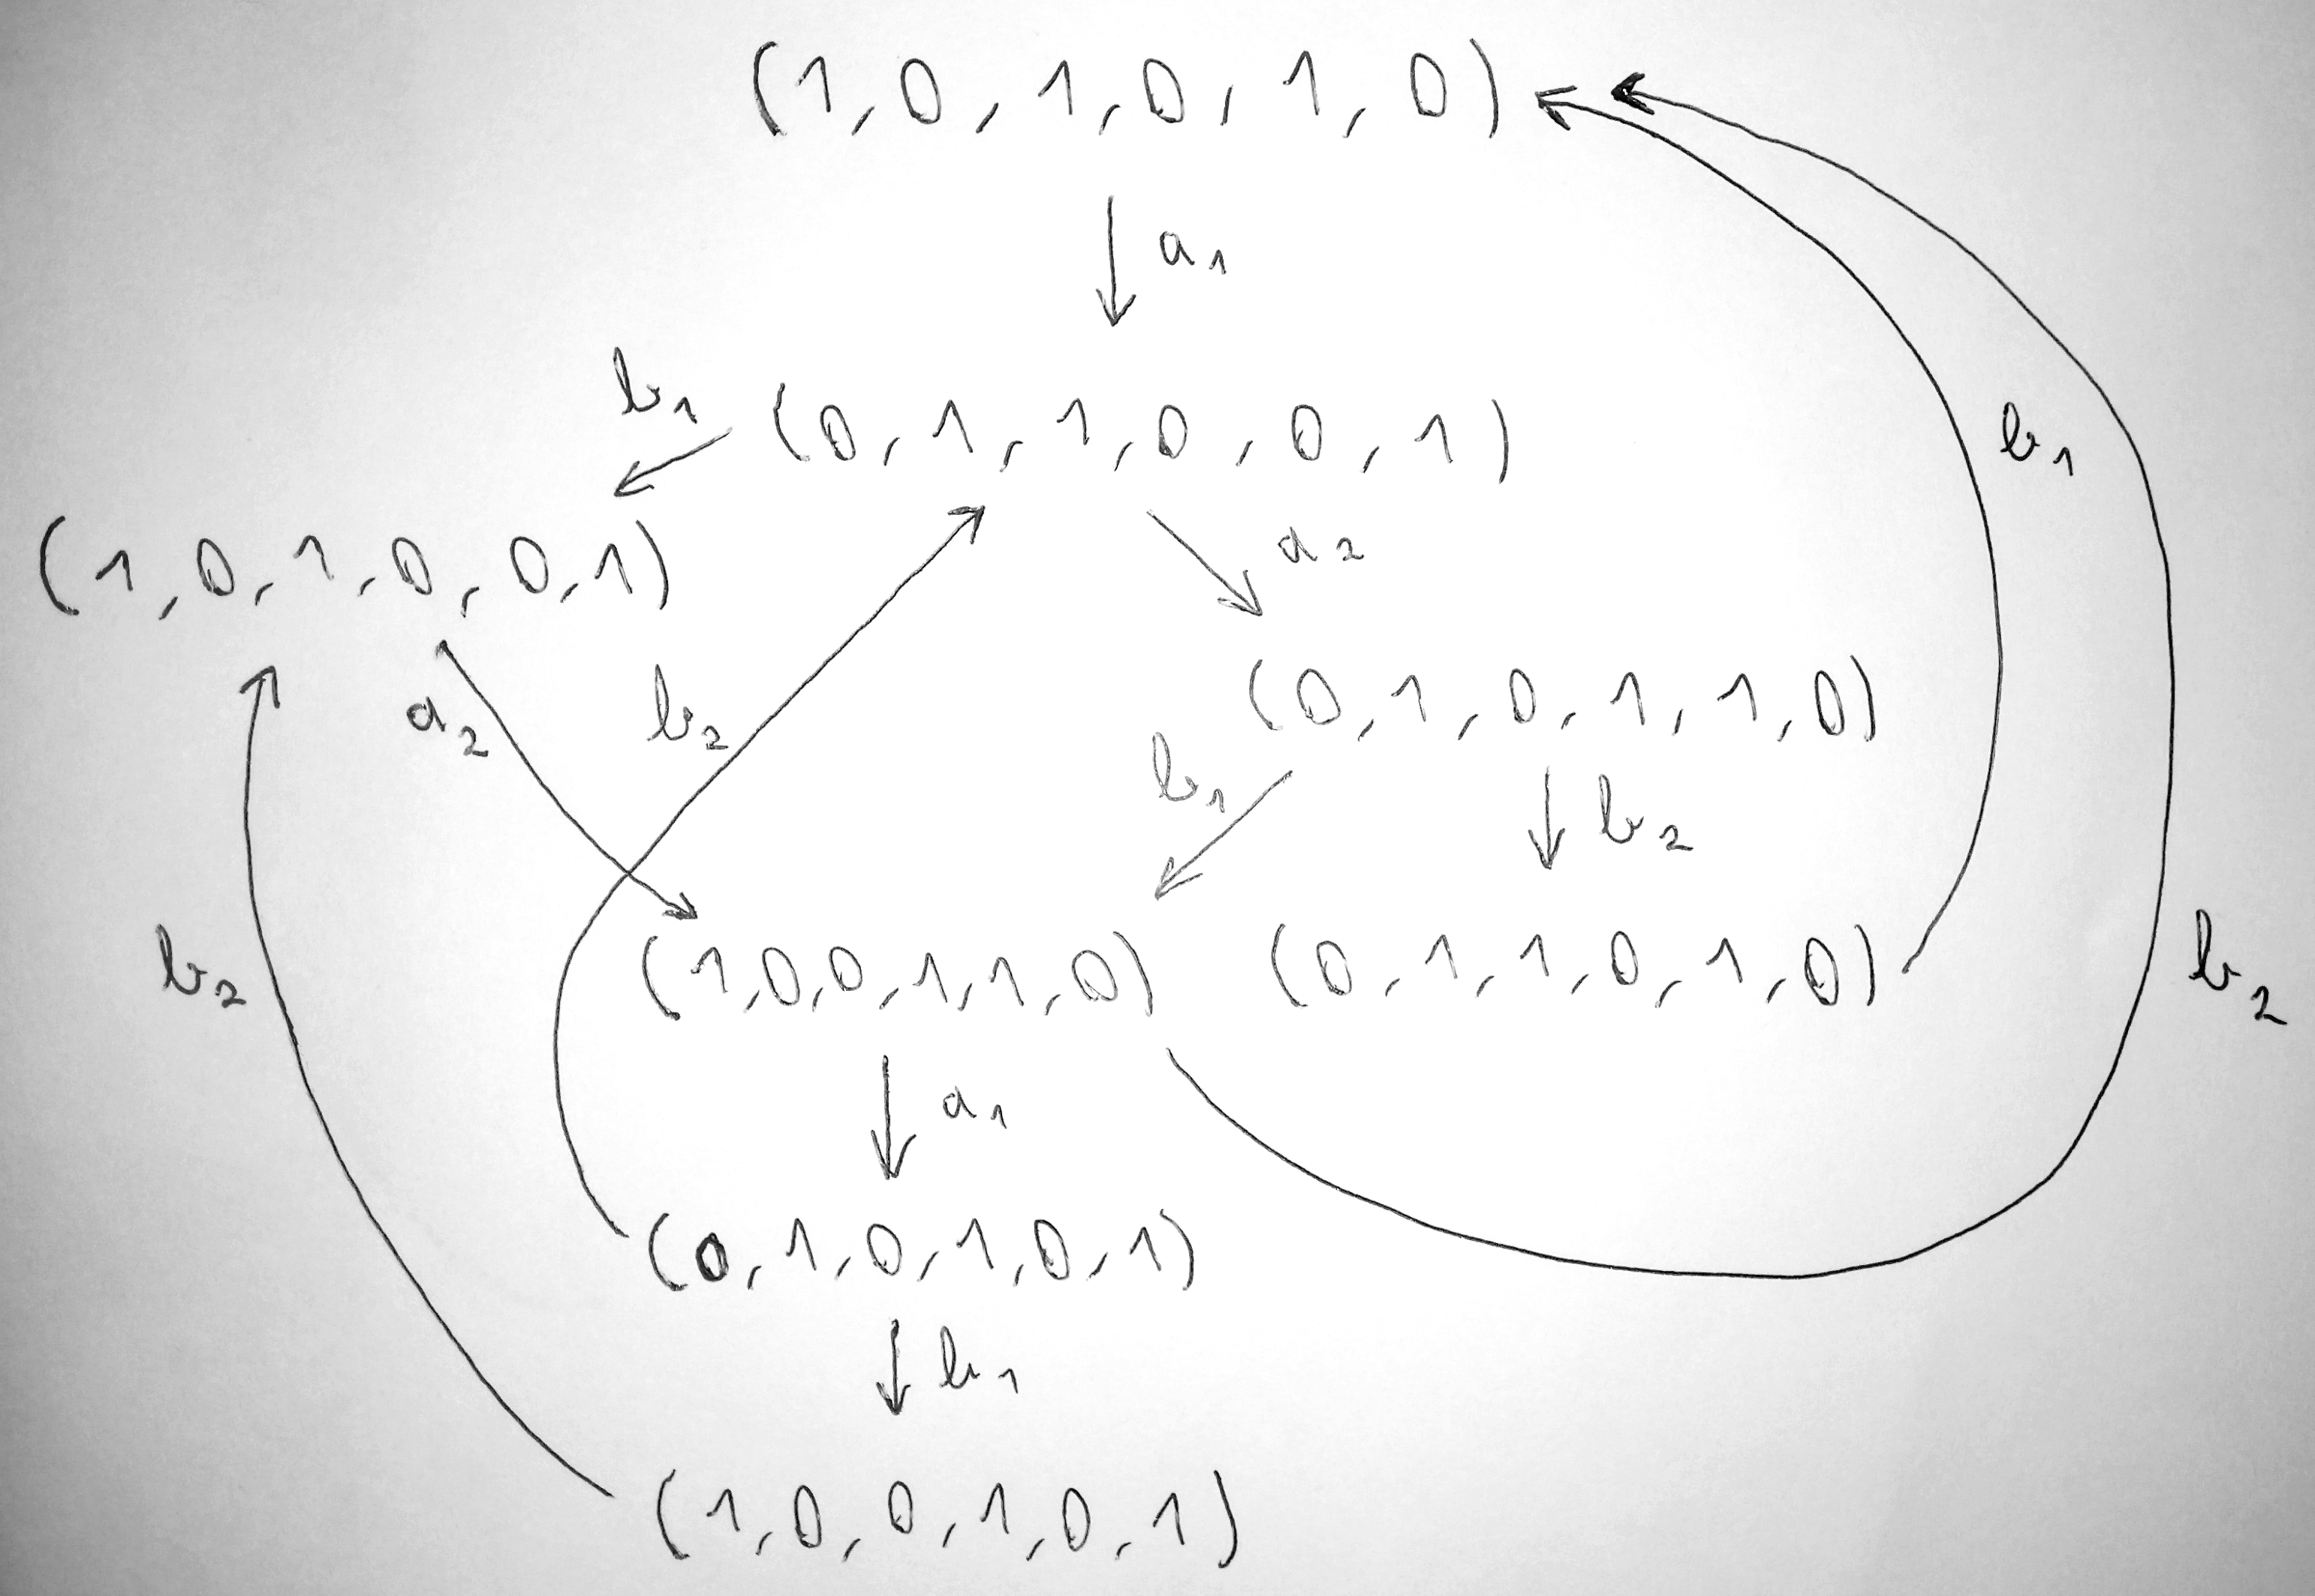 (1, 0, 1, 0, 1, 0)
a₁
b₁
(0, 1, 1, 0, 0, 1)
b₁
(1, 0, 1, 0, 0, 1)
a₂
a₂
b₂
(0, 1, 0, 1, 1, 0)
b₁
b₂
b₂
(1, 0, 0, 1, 1, 0)
(0, 1, 1, 0, 1, 0)
b₂
a₁
(0, 1, 0, 1, 0, 1)
b₁
(1, 0, 0, 1, 0, 1)